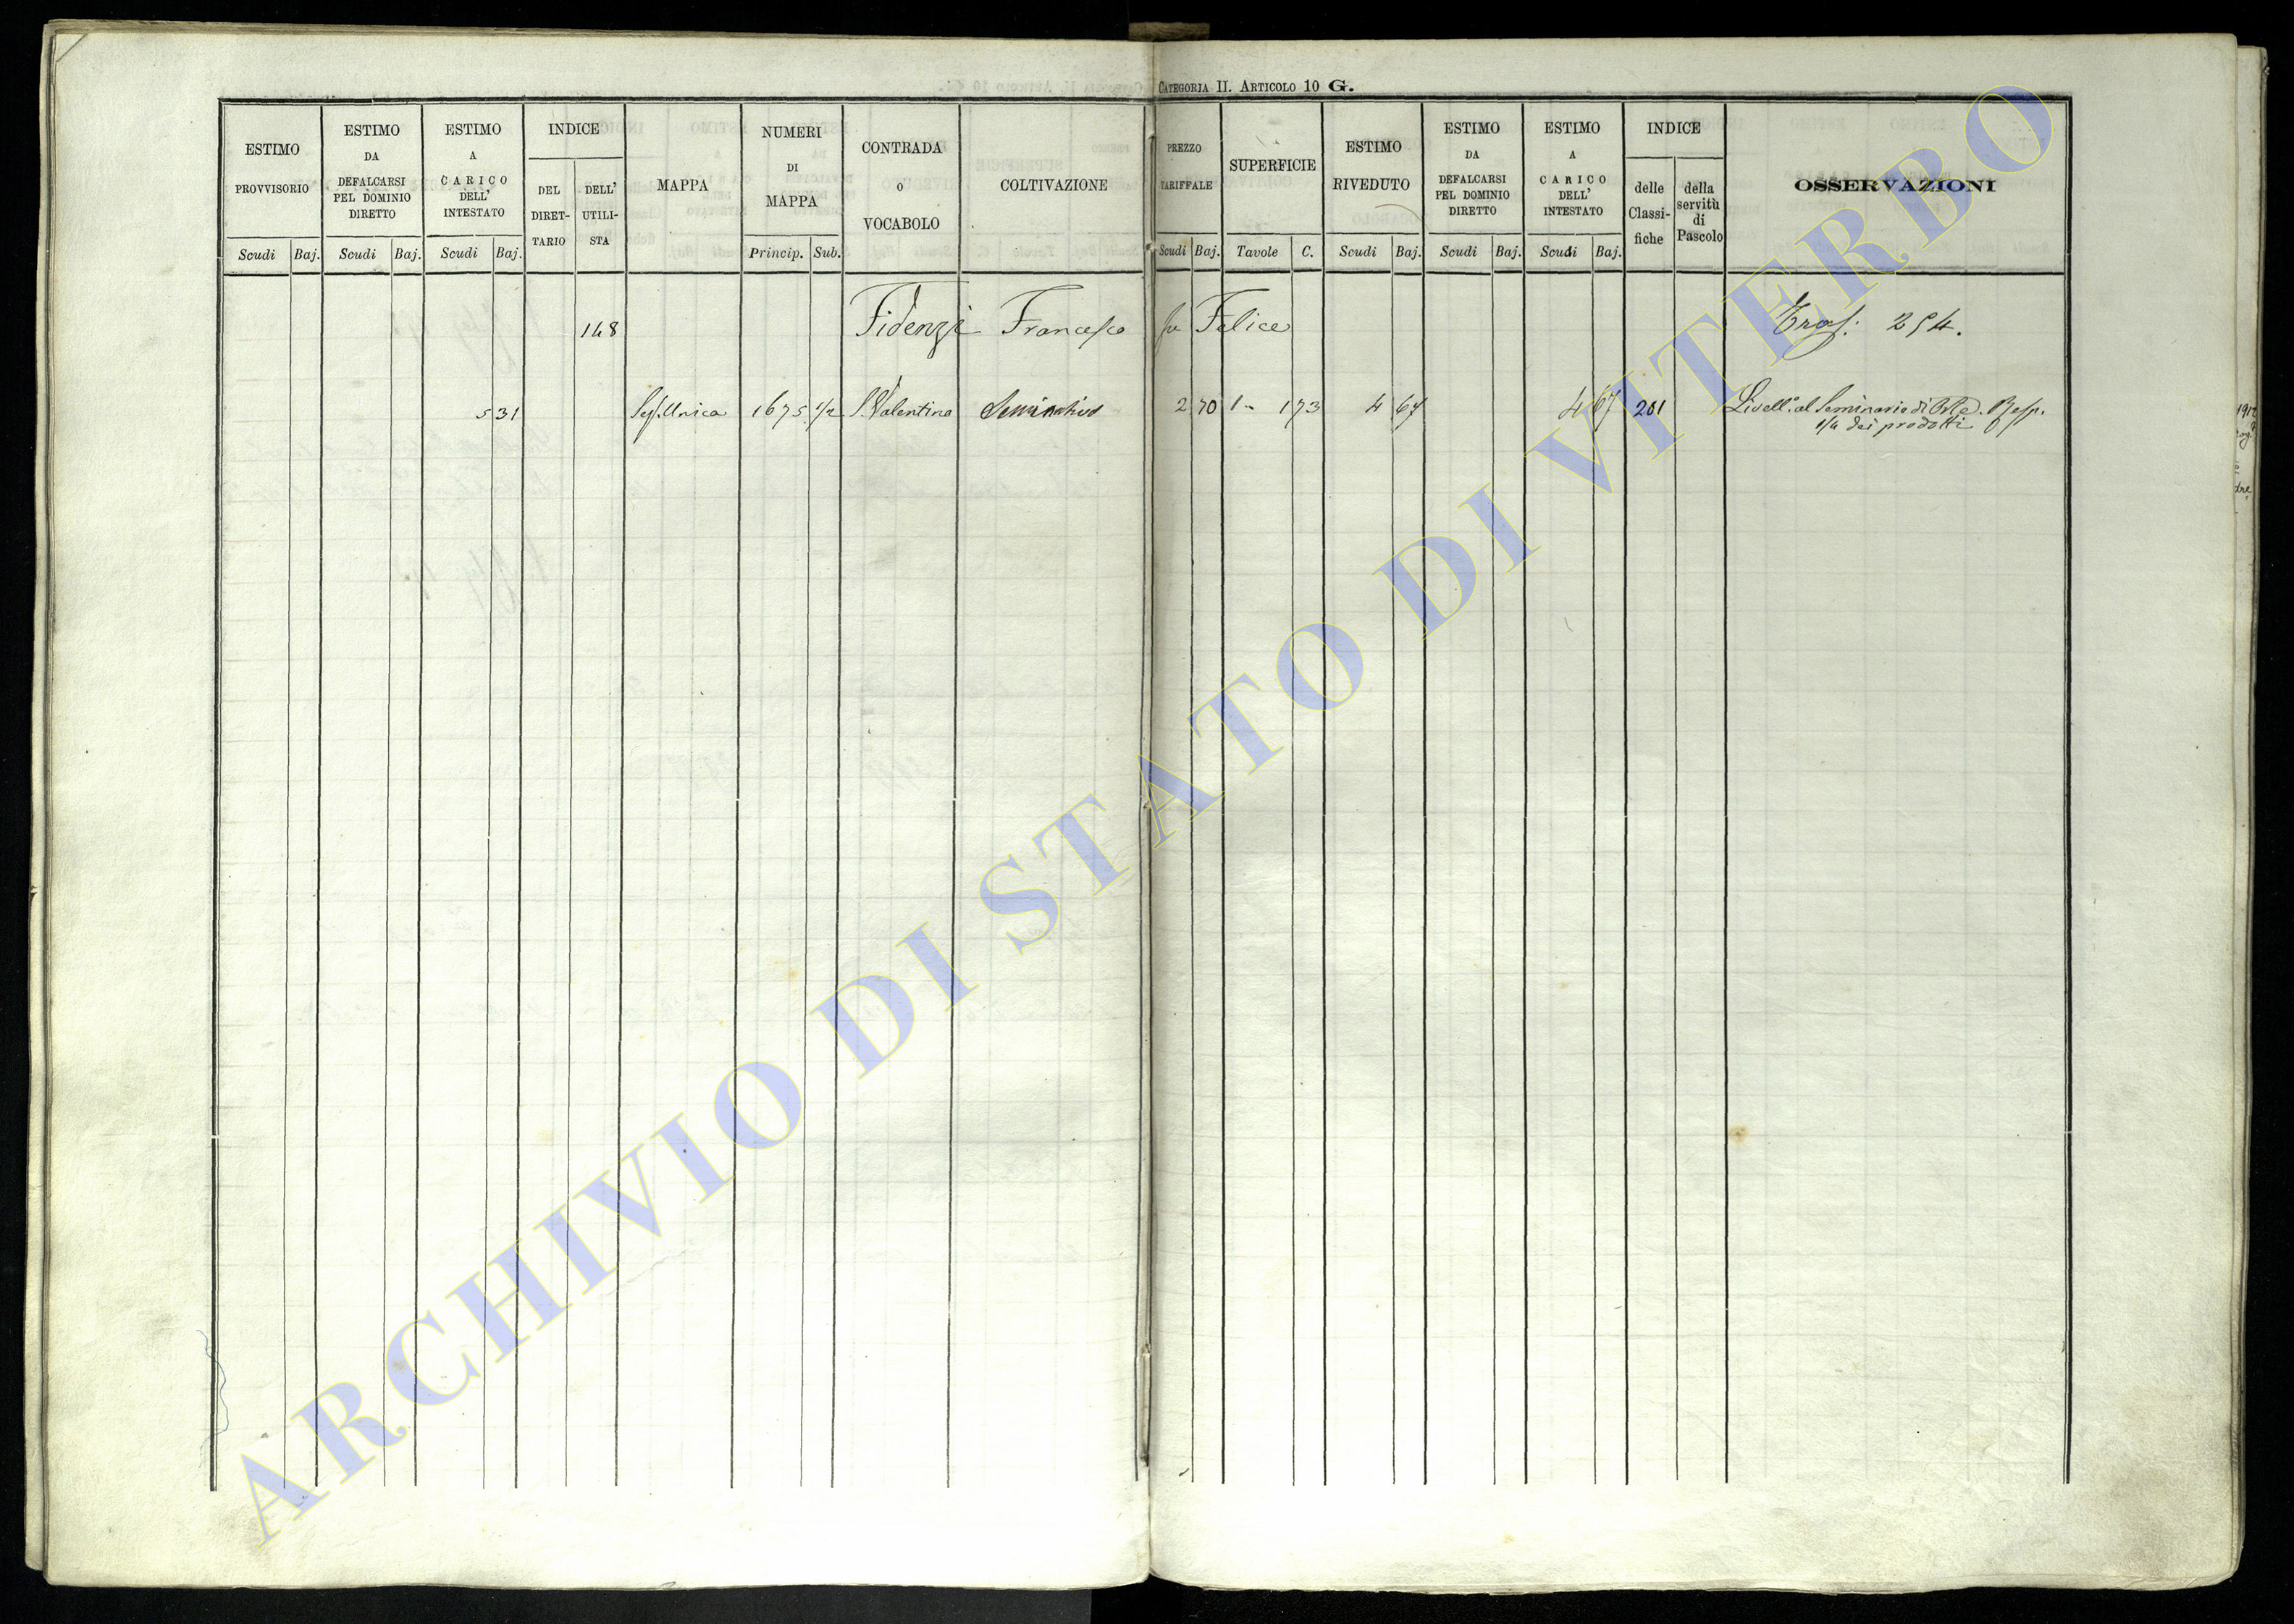 CATEGORIA II. ARTICOLO 10 G.
ESTIMO PROVVISORIO
ESTIMO DA DEFALCARSI PEL DOMINIO DIRETTO
ESTIMO A CARICO DELL' INTESTATO
INDICE
DEL DIRETTARIO
DELL' UTILISTA
MAPPA
NUMERI DI MAPPA
CONTRADA O VOCABOLO
COLTIVAZIONE
PREZZO TARIFFALE
SUPERFICIE
ESTIMO RIVEDUTO
ESTIMO DA DEFALCARSI PEL DOMINIO DIRETTO
ESTIMO A CARICO DELL' INTESTATO
INDICE
delle Classifiche
della servitù di Pascolo
OSSERVAZIONI
Scudi Baj. Scudi Baj. Scudi Baj. Princip. Sub. Scudi Baj. Tavole C. Scudi Baj. Scudi Baj. Scudi Baj.
148 Fidenzi Francesco fu Felice Tras: 254.
5 31 Sez. Unica 1675 1/2 S. Valentino Seminativo 2 70 1 73 4 67 4 67 201 Livell.º al Seminario di Orte. Resp.
1/4 dei prodotti
ARCHIVIO DI STATO DI VITERBO